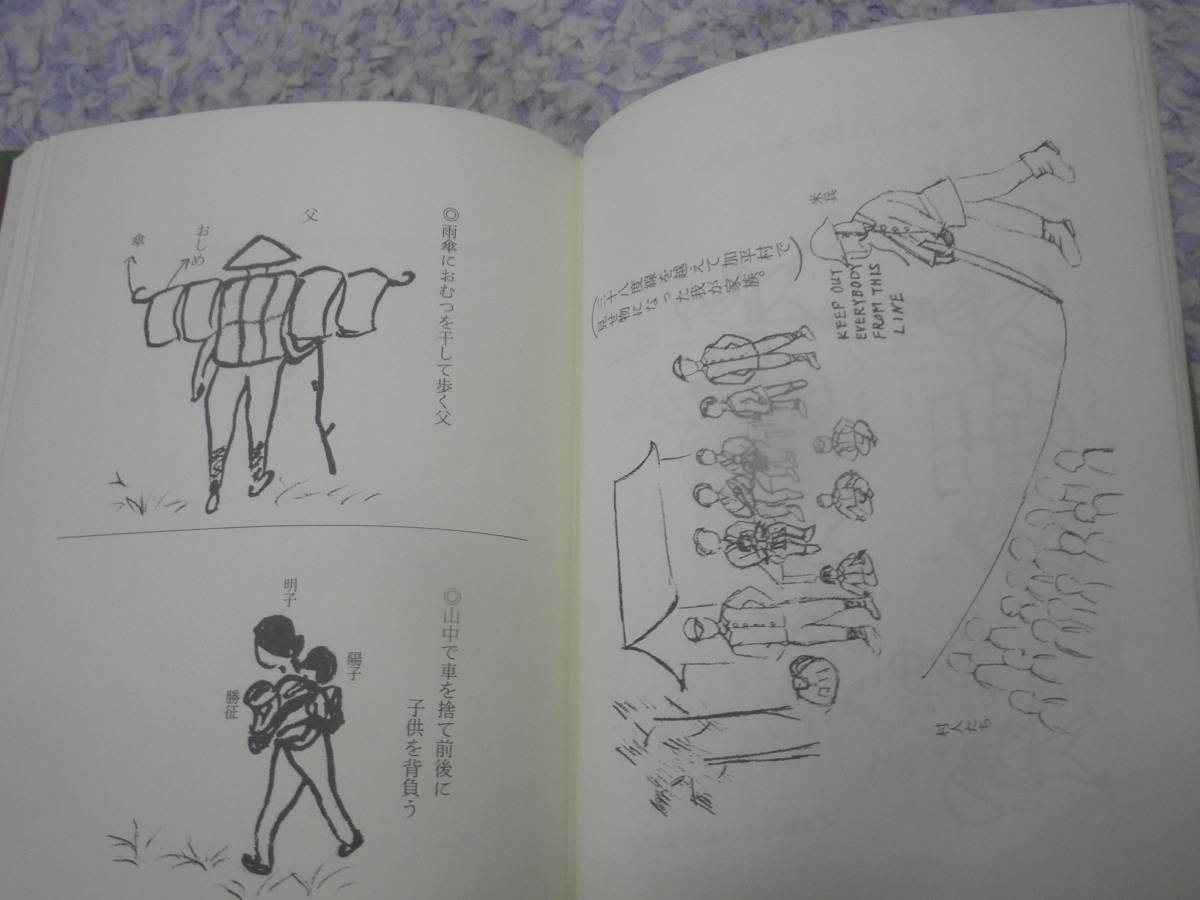 米兵
KEEP OUT
EVERYBODY
FROM THIS
LINE
(三十八度線を越えて加平村で
見世物になった我が家族。)
村人たち
◎雨傘におむつを干して歩く父
父
おしめ
傘
◎山中で車を捨て前後に
子供を背負う
明子
陽子
勝征